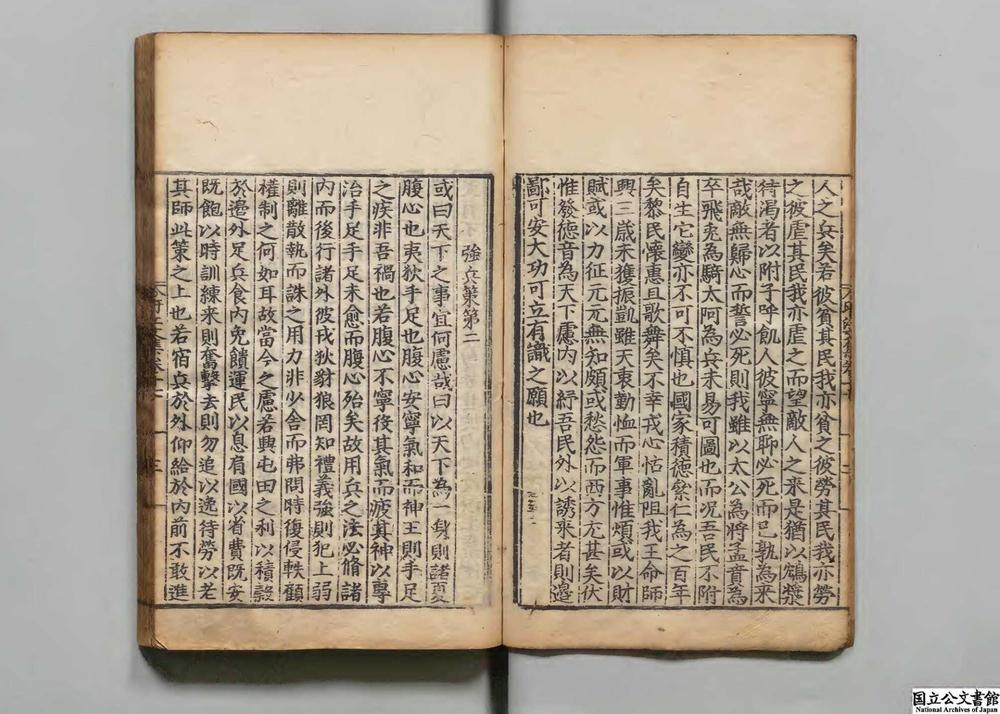 人之兵矣若彼貧其民我亦貧之彼勞其民我亦勞
之彼虐其民我亦虐之而望敵人之来是猶以鴆漿
待渴者以附子呼飢人彼寧無聊必死而已孰為来
哉敵無歸心而誓必死則我雖以太公為將孟賁為
卒飛兎為騎太阿為兵未易可圖也而况吾民不附
自生它變亦不可不慎也國家積德絫仁為之百年
矣黎民懷惠且歌舞矣不幸戎心怙亂阻我王命師
興三歳未獲振凱雖天衷勤恤而軍事惟煩或以財
賦或以力征元元無知頗或愁怨而西方尢甚矣伏
惟發德音為天下慮内以紓吾民外以誘来者則邉
鄙可安大功可立有識之願也
強兵策第二
或曰天下之事宜何慮哉曰以天下為一身則諸夏
腹心也夷狄手足也腹心安寧氣和而神王則手足
之疾非吾禍也若腹心不寧後其氣而疲其神以專
治手足手足未愈而腹心殆矣故用兵之法必脩諸
内而後行諸外彼戎狄豺狼罔知禮義強則犯上弱
則離散執而誅之用力非少舍而弗問時復侵軼顧
權制之何如耳故當今之慮若興屯田之利以積穀
於邉外足兵食内免饋運民以息肩國以省費既安
既飽以時訓練来則奮擊去則勿追以逸待勞以老
其師此策之上也若宿兵於外仰給於内前不敢進
三
国立公文書館
National Archives of Japan